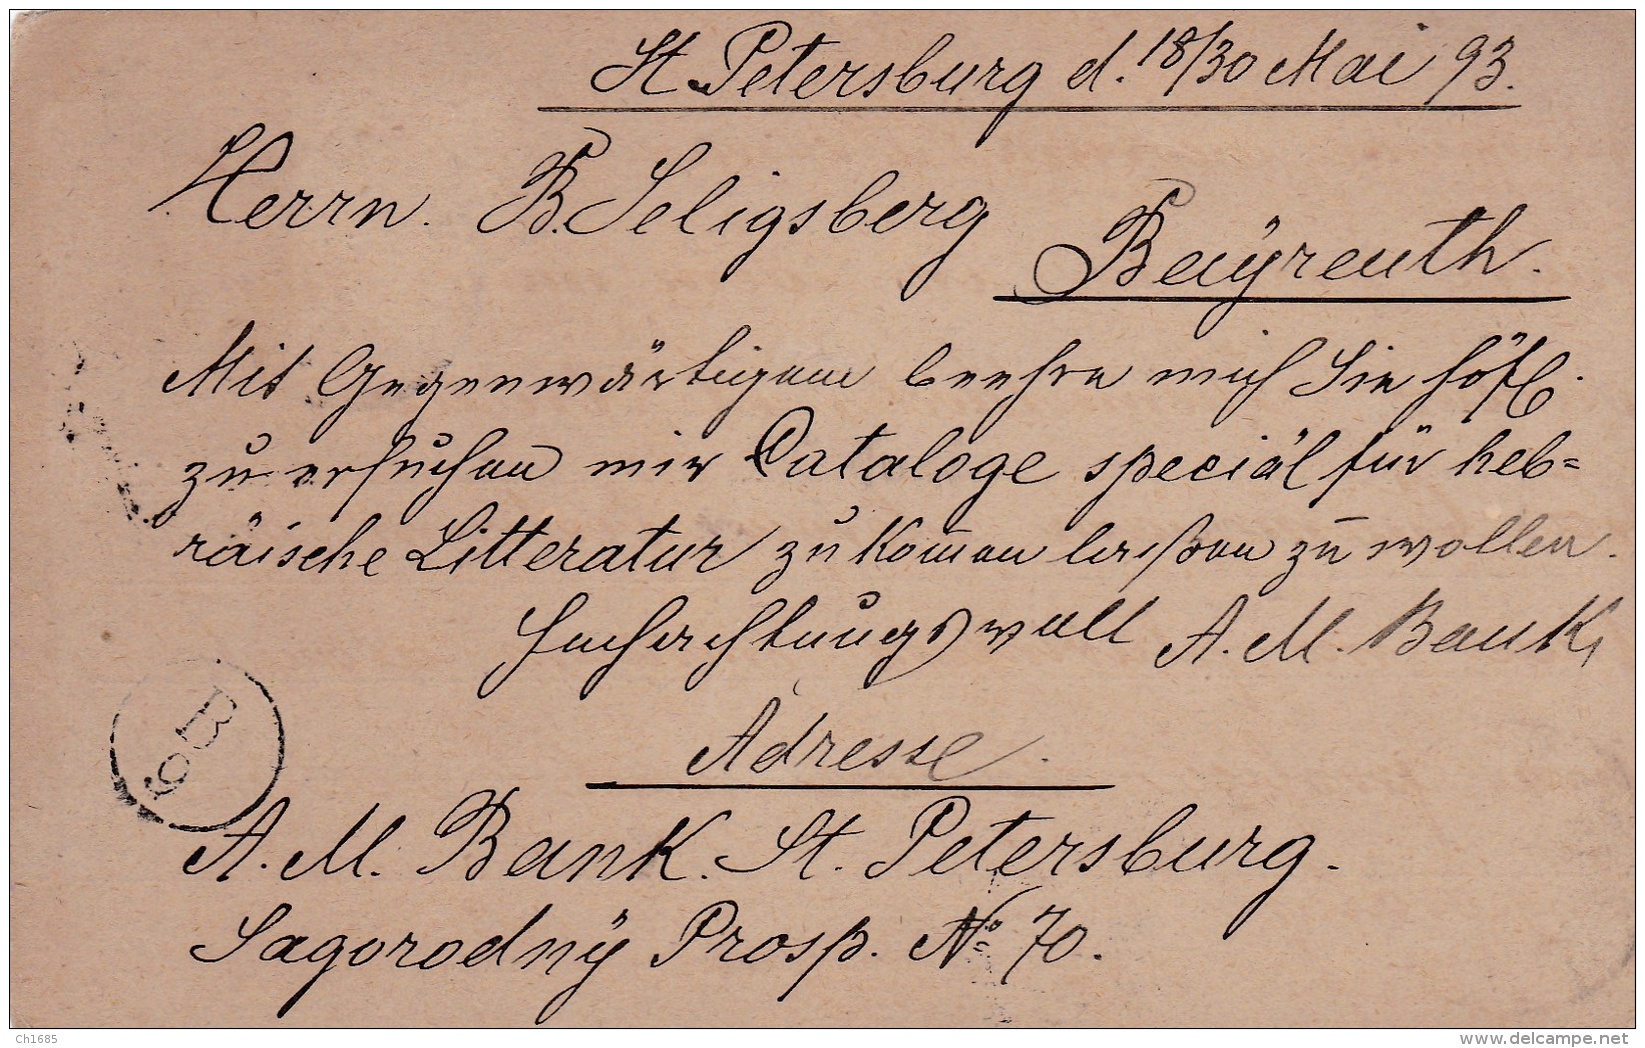 St. Petersburg d. 18/30 Mai 93.
Herrn. B. Seligsberg
Bayreuth.
Mit Gegenwärtigem beehre mich Sie höfl.
zu ersuchen mir Cataloge speciäl für heb=
räische Litteratur zu kom̄en laßen zu wollen.
Hochachtungsvoll A. M. Bank,
Adresse.
A. M. Bank. St. Petersburg.
Sagorodnÿ Prosp. No. 70.
B
9
Ch1685
delcampe.net